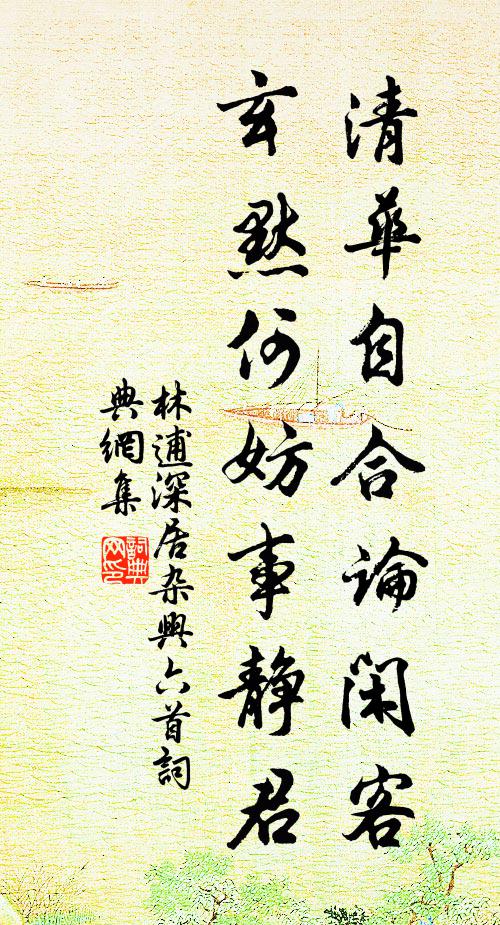 清華自合論閑客
玄默何妨事静君
林逋深居杂興六首詞
典網集
詞典網印